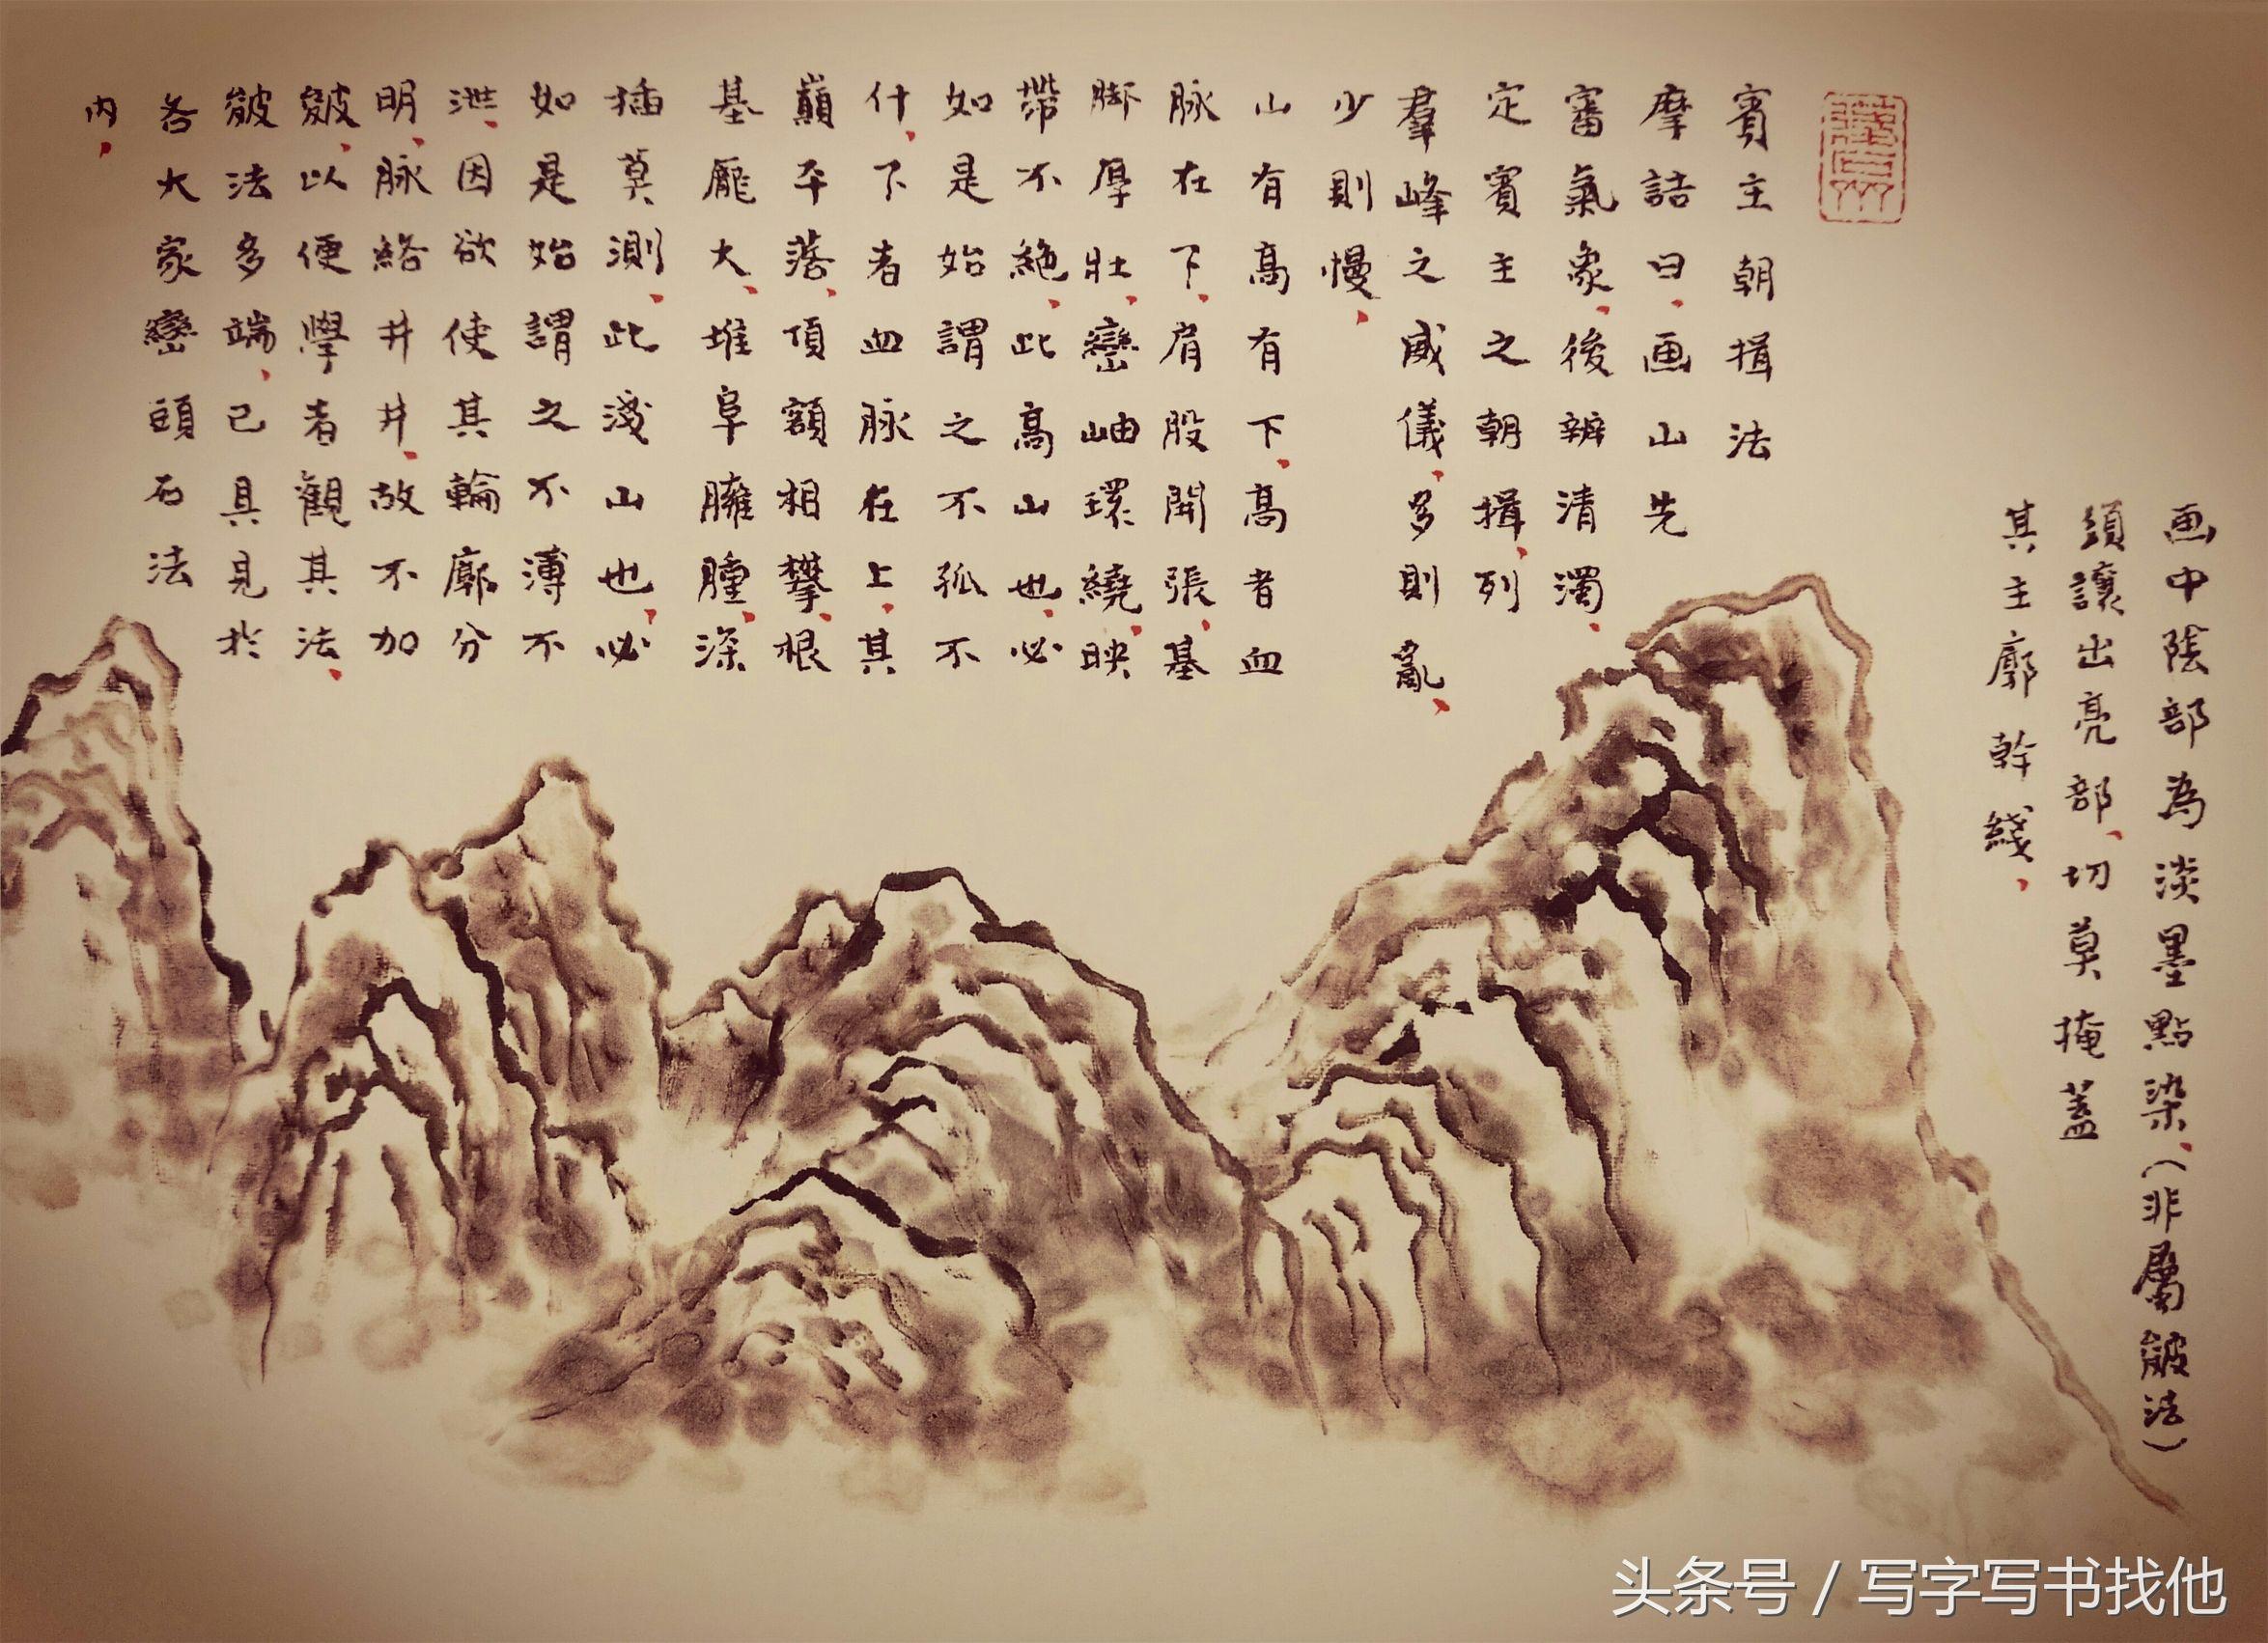 画中陰部為淡墨點染、(非屬皴法)
須讓出亮部、切莫掩蓋
其主廓幹綫、
賓主朝揖法
摩詰曰、画山先
審氣象、後辨清濁、
定賓主之朝揖、列
羣峰之威儀、多則亂、
少則慢、
山有高有下、高者血
脉在下、肩股開張、基
脚厚壯、巒岫環繞、映
帶不絶、此高山也、必
如是始謂之不孤不
什、下者血脉在上、其
巔半落、頂額相攀、根
基龐大、堆阜臃腫、深
插莫測、此淺山也、必
如是始謂之不薄不
泄、因欲使其輪廓分
明、脉絡井井、故不加
皴、以便學者觀其法、
皴法多端、已具見於
各大家巒頭石法
内、
头条号 / 写字写书找他